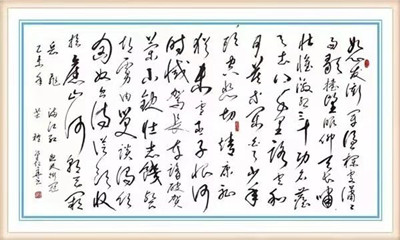 怒发冲冠凭栏处潇潇
雨歇抬望眼仰天长啸
壮怀激烈三十功名尘
与土八千里路云和
月莫等闲白了少年
头空悲切靖康耻
犹未雪臣子恨何
时灭驾长车踏破贺
兰山缺壮志饥餐
胡虏肉笑谈渴饮
匈奴血待从头收
拾旧山河朝天阙
岳飞 满江红 怒发冲冠
乙未年